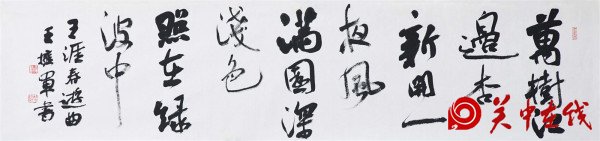 萬樹江
邊杏
新開一
夜風
滿園深
淺色
照在綠
波中
王涯春遊曲
王軍書
关中在线